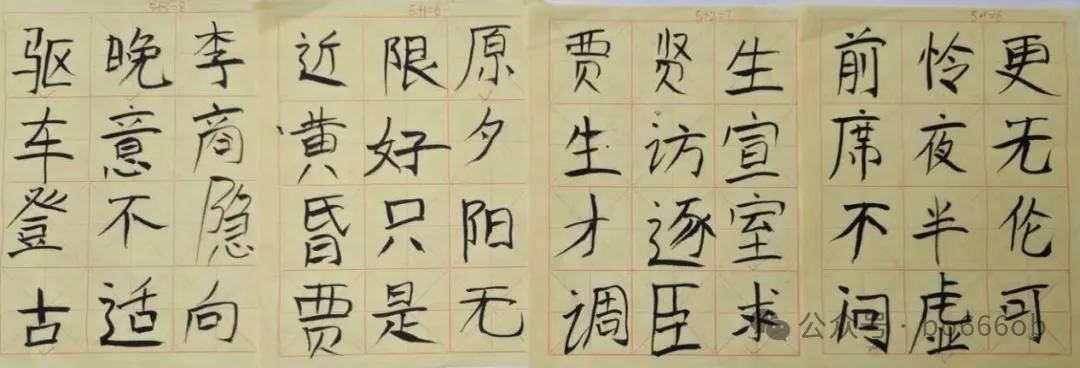 5+3=8
李商隐向
晚意不适
驱车登古
5+1=6
原夕阳无
限好只是
近黄昏贾
5+2=7
生宣室求
贤访逐臣
贾生才调
5+1=6
更无伦可
怜夜半虚
前席不问
公众号